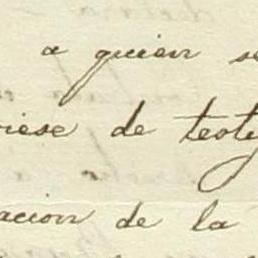 a quien se
riese de testi
acion de la